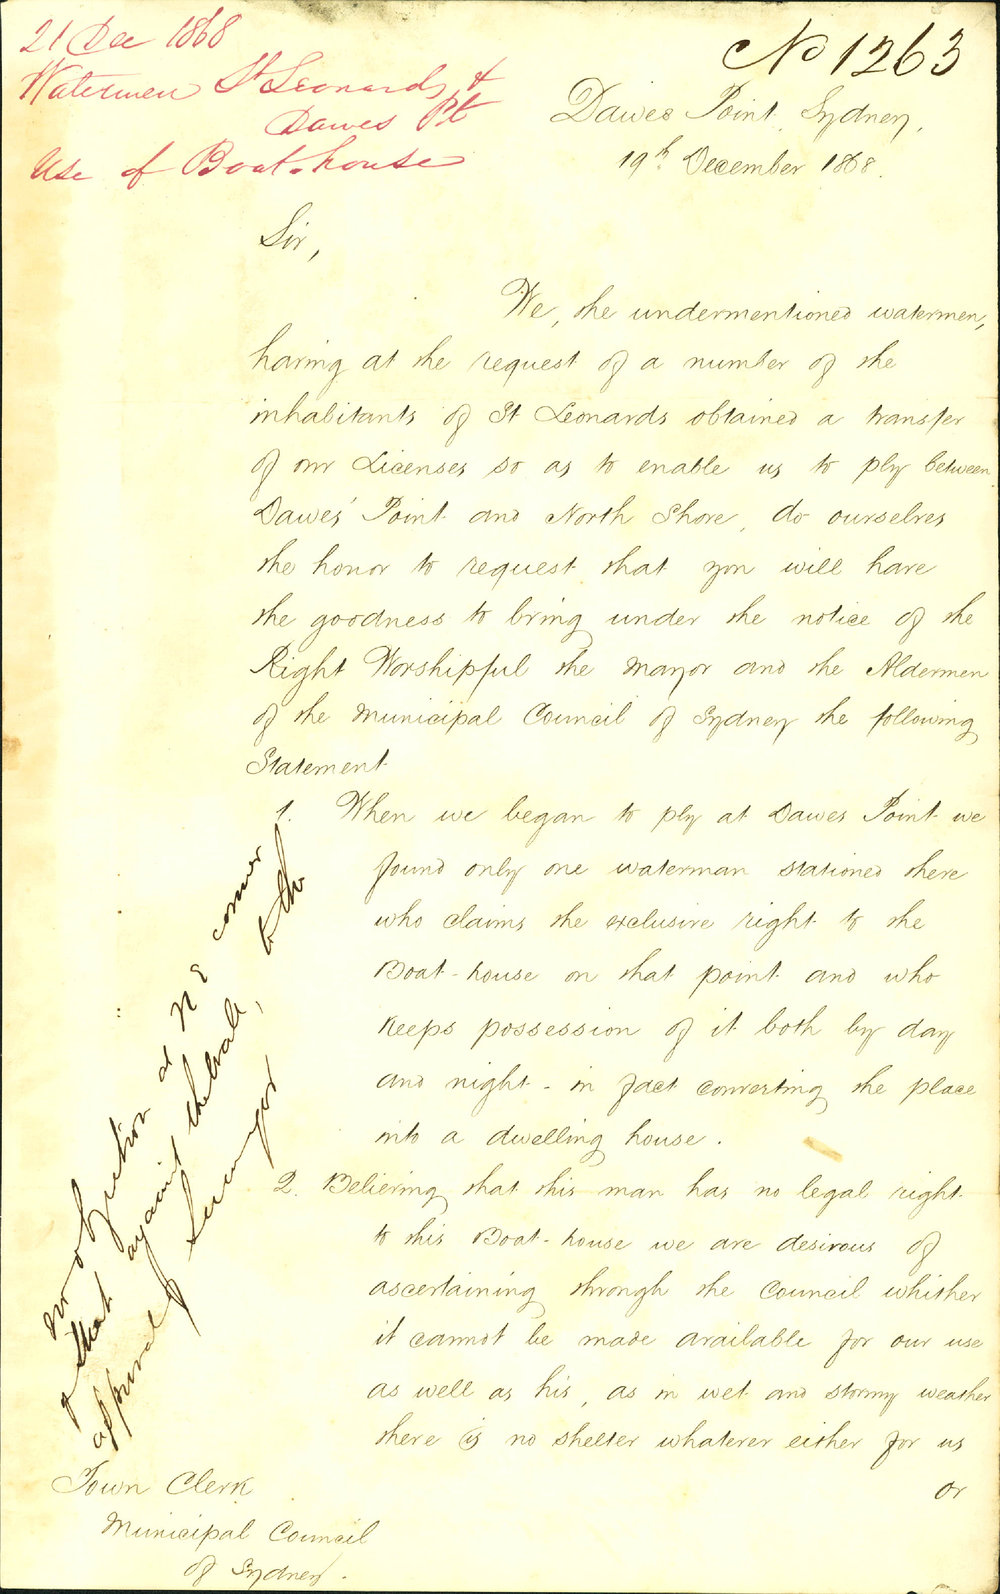 21 Dec 1868
Watermen St Leonards &
Dawes Pt
Use of Boat-house
No 1263
Dawes Point, Sydney,
19th December 1868.
Sir,
We, the undermentioned watermen,
having at the request of a number of the
inhabitants of St Leonards obtained a transfer
of our Licenses so as to enable us to ply between
Dawes' Point and North Shore, do ourselves
the honor to request that you will have
the goodness to bring under the notice of the
Right Worshipful the Mayor and the Aldermen
of the Municipal Council of Sydney the following
Statement
1. When we began to ply at Dawes Point we
found only one waterman stationed there
who claims the exclusive right to the
Boat-house on that point and who
keeps possession of it both by day
and night - in fact converting the place
into a dwelling house.
2. Believing that this man has no legal right
to this Boat-house we are desirous of
ascertaining through the Council whither
it cannot be made available for our use
as well as his, as in wet and stormy weather
there is no shelter whatever either for us
or
no objection at NE corner
& that against the wall, to the
approval of Surveyor
Town Clerk
Municipal Council
of Sydney.